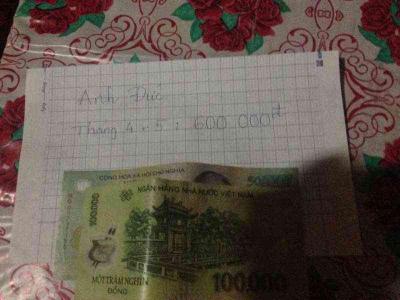 Anh Đức
Tháng 4 + 5 : 600.000đ
CỘNG HÒA XÃ HỘI CHỦ NGHĨA
NGÂN HÀNG NHÀ NƯỚC VIỆT NAM
100.000
MỘT TRĂM NGHÌN
ĐỒNG
100.000